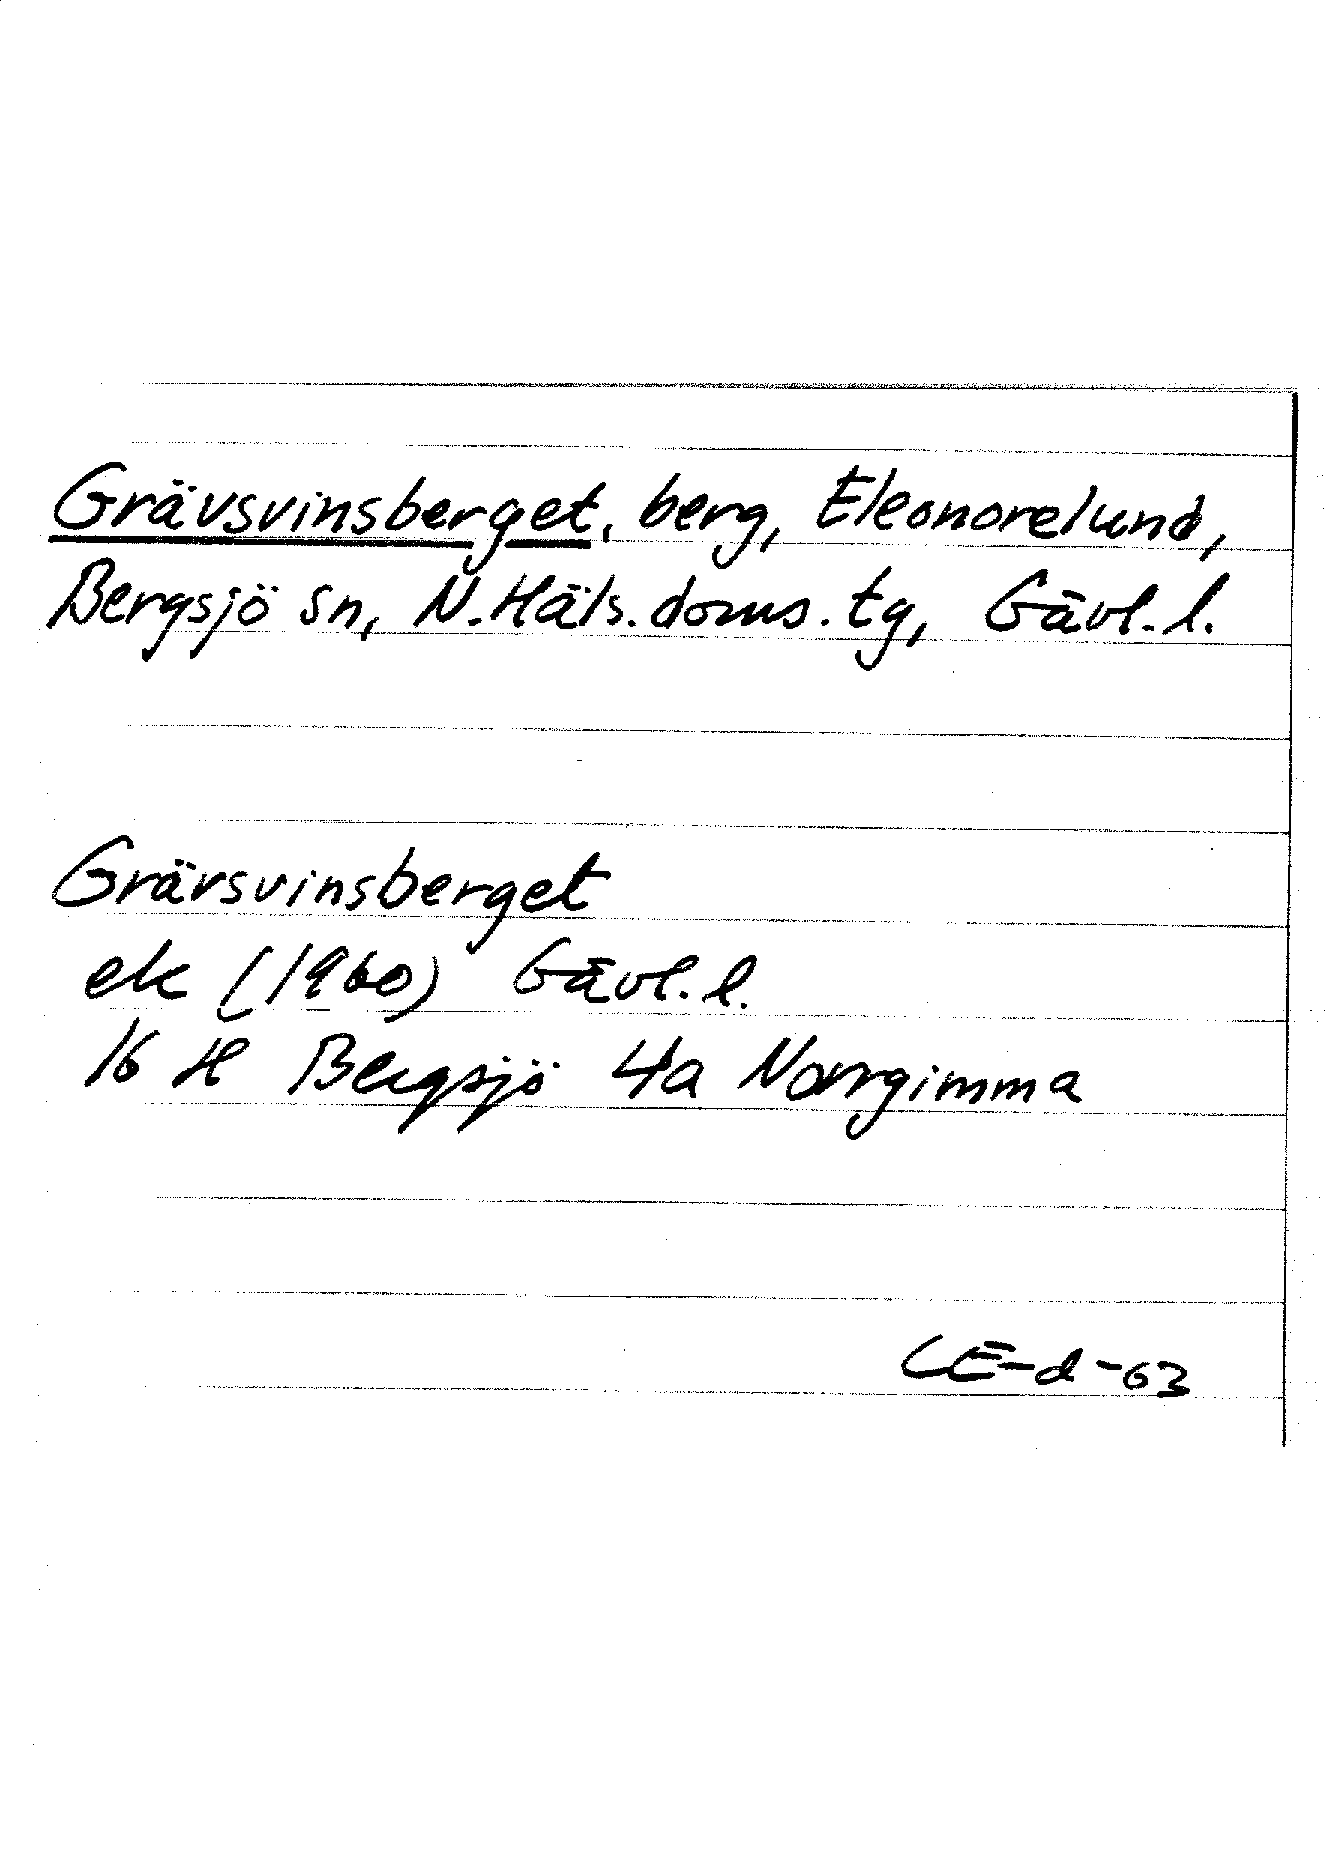 Grävsvinsberget, berg, Eleonorelund,
Bergsjö sn, N. Häls. doms. tg, Gävl. l.
Grävsvinsberget
ek (1960) Gävl. l.
16 H Bergsjö 4a Norrgimma
CE-d-63